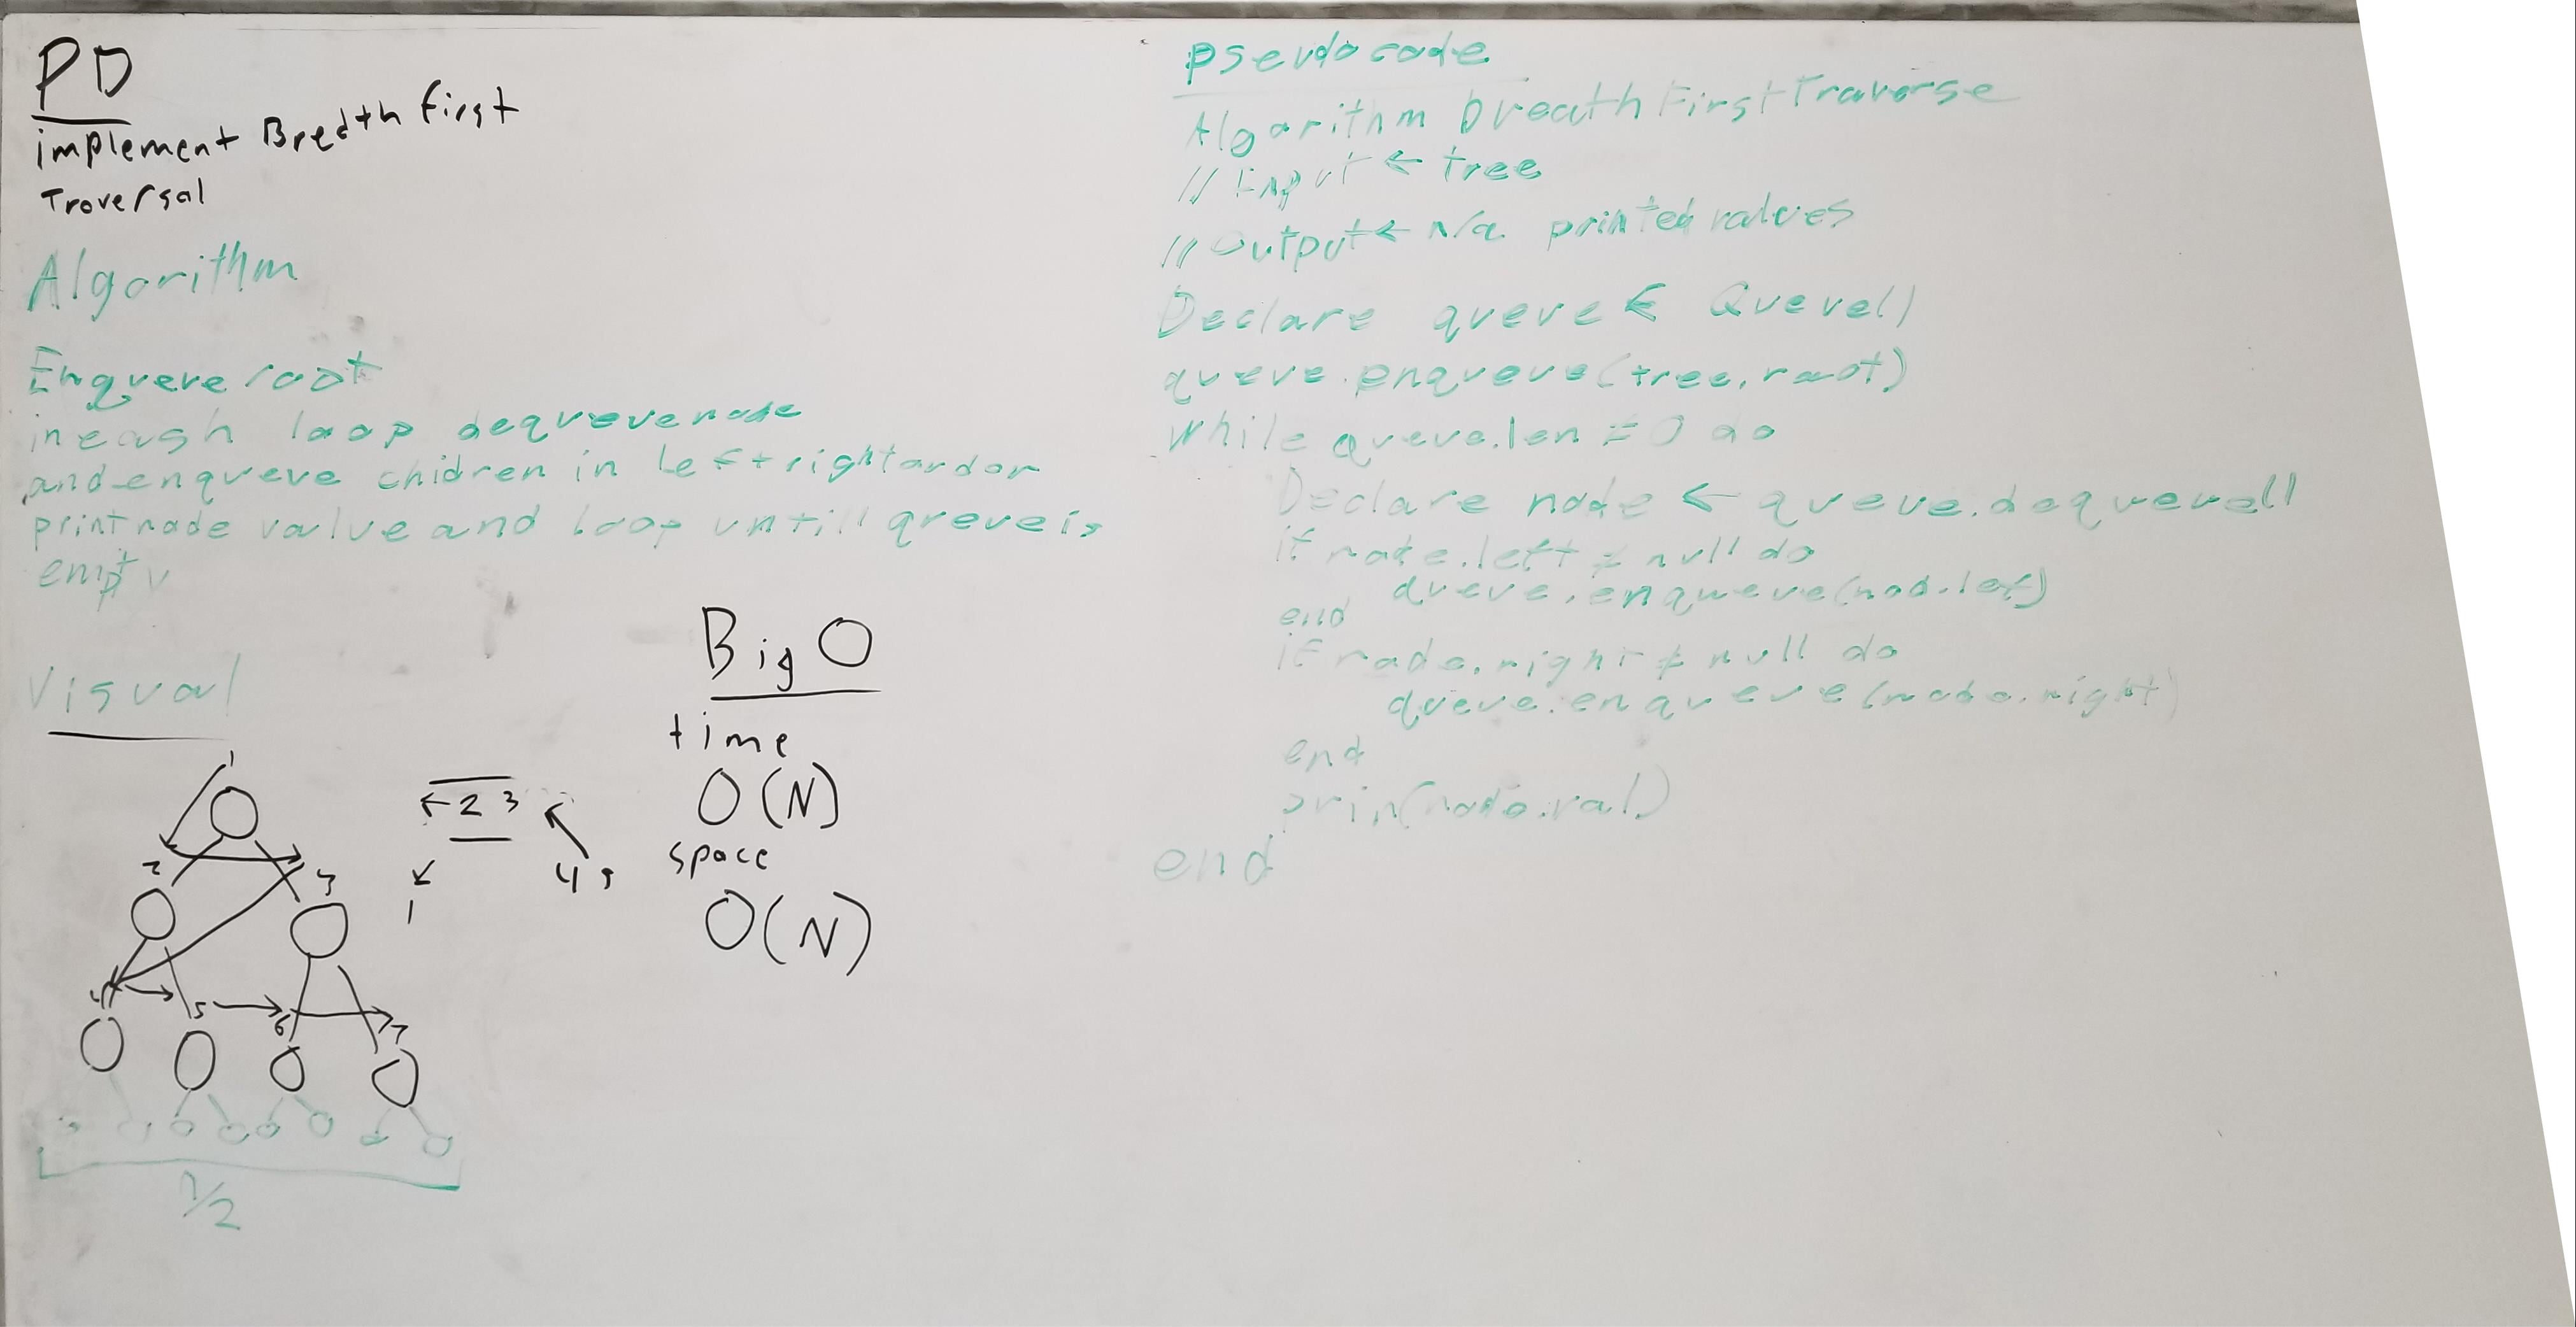 PD
implement Bredth first
Traversal
Algorithm
Enqueue root
in eash loop dequeue node
and enqueue chidren in left right ordor
print node value and loop untill qreue is
empty
Visual
1
2 3
4 5 6 7
1/2
← 2 3
1
4 5
Big O
time
O(N)
space
O(N)
pseudo code
Algorithm breathFirstTraverse
// Input ← tree
// Output ← N/a printed values
Declare queue ← Queue()
queue.enqueue(tree.root)
while queue.len ≠ 0 do
Declare node ← queue.dequeue()
if node.left ≠ null do
queue.enqueue(nod.lef)
end
if node.right ≠ null do
queue.enqueue(node.right)
end
prin(node.val)
end